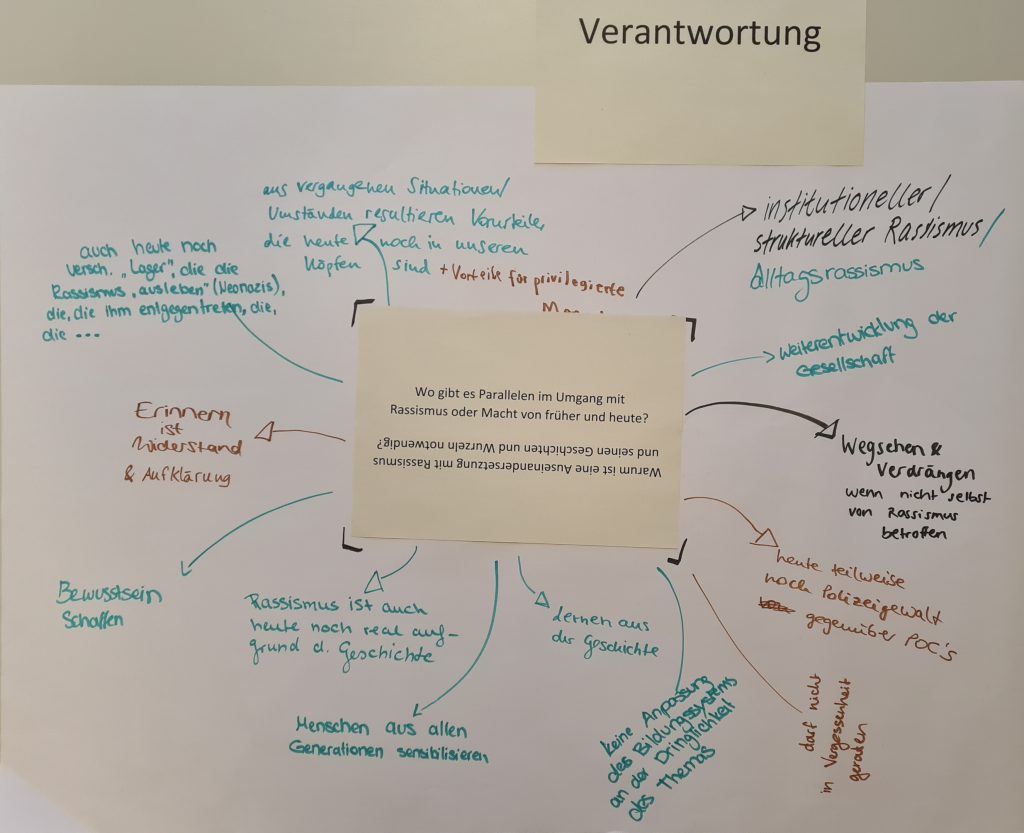 Verantwortung
aus vergangenen Situationen/
Umständen resultieren Vorurteile,
die heute noch in unseren
Köpfen sind + Vorteile für privilegierte
institutioneller/
struktureller Rassismus/
Alltagsrassismus
auch heute noch
versch. „Lager", die die
Rassismus „ausleben" (Neonazis),
die, die ihm entgegentreten, die,
die ...
Weiterentwicklung der
Gesellschaft
Wo gibt es Parallelen im Umgang mit
Rassismus oder Macht von früher und heute?
Warum ist eine Auseinandersetzung mit Rassismus
und seinen Geschichten und Wurzeln notwendig?
Erinnern
ist
Widerstand
& Aufklärung
Wegsehen &
Verdrängen
wenn nicht selbst
von Rassismus
betroffen
heute teilweise
noch Polizeigewalt
gegenüber POC's
Bewusstsein
Schaffen
Rassismus ist auch
heute noch real auf-
grund d. Geschichte
Lernen aus
der Geschichte
Menschen aus allen
Generationen sensibilisieren
keine Anpassung
des Bildungssystems
an der Dringlichkeit
des Themas
darf nicht
in Vergessenheit
geraten